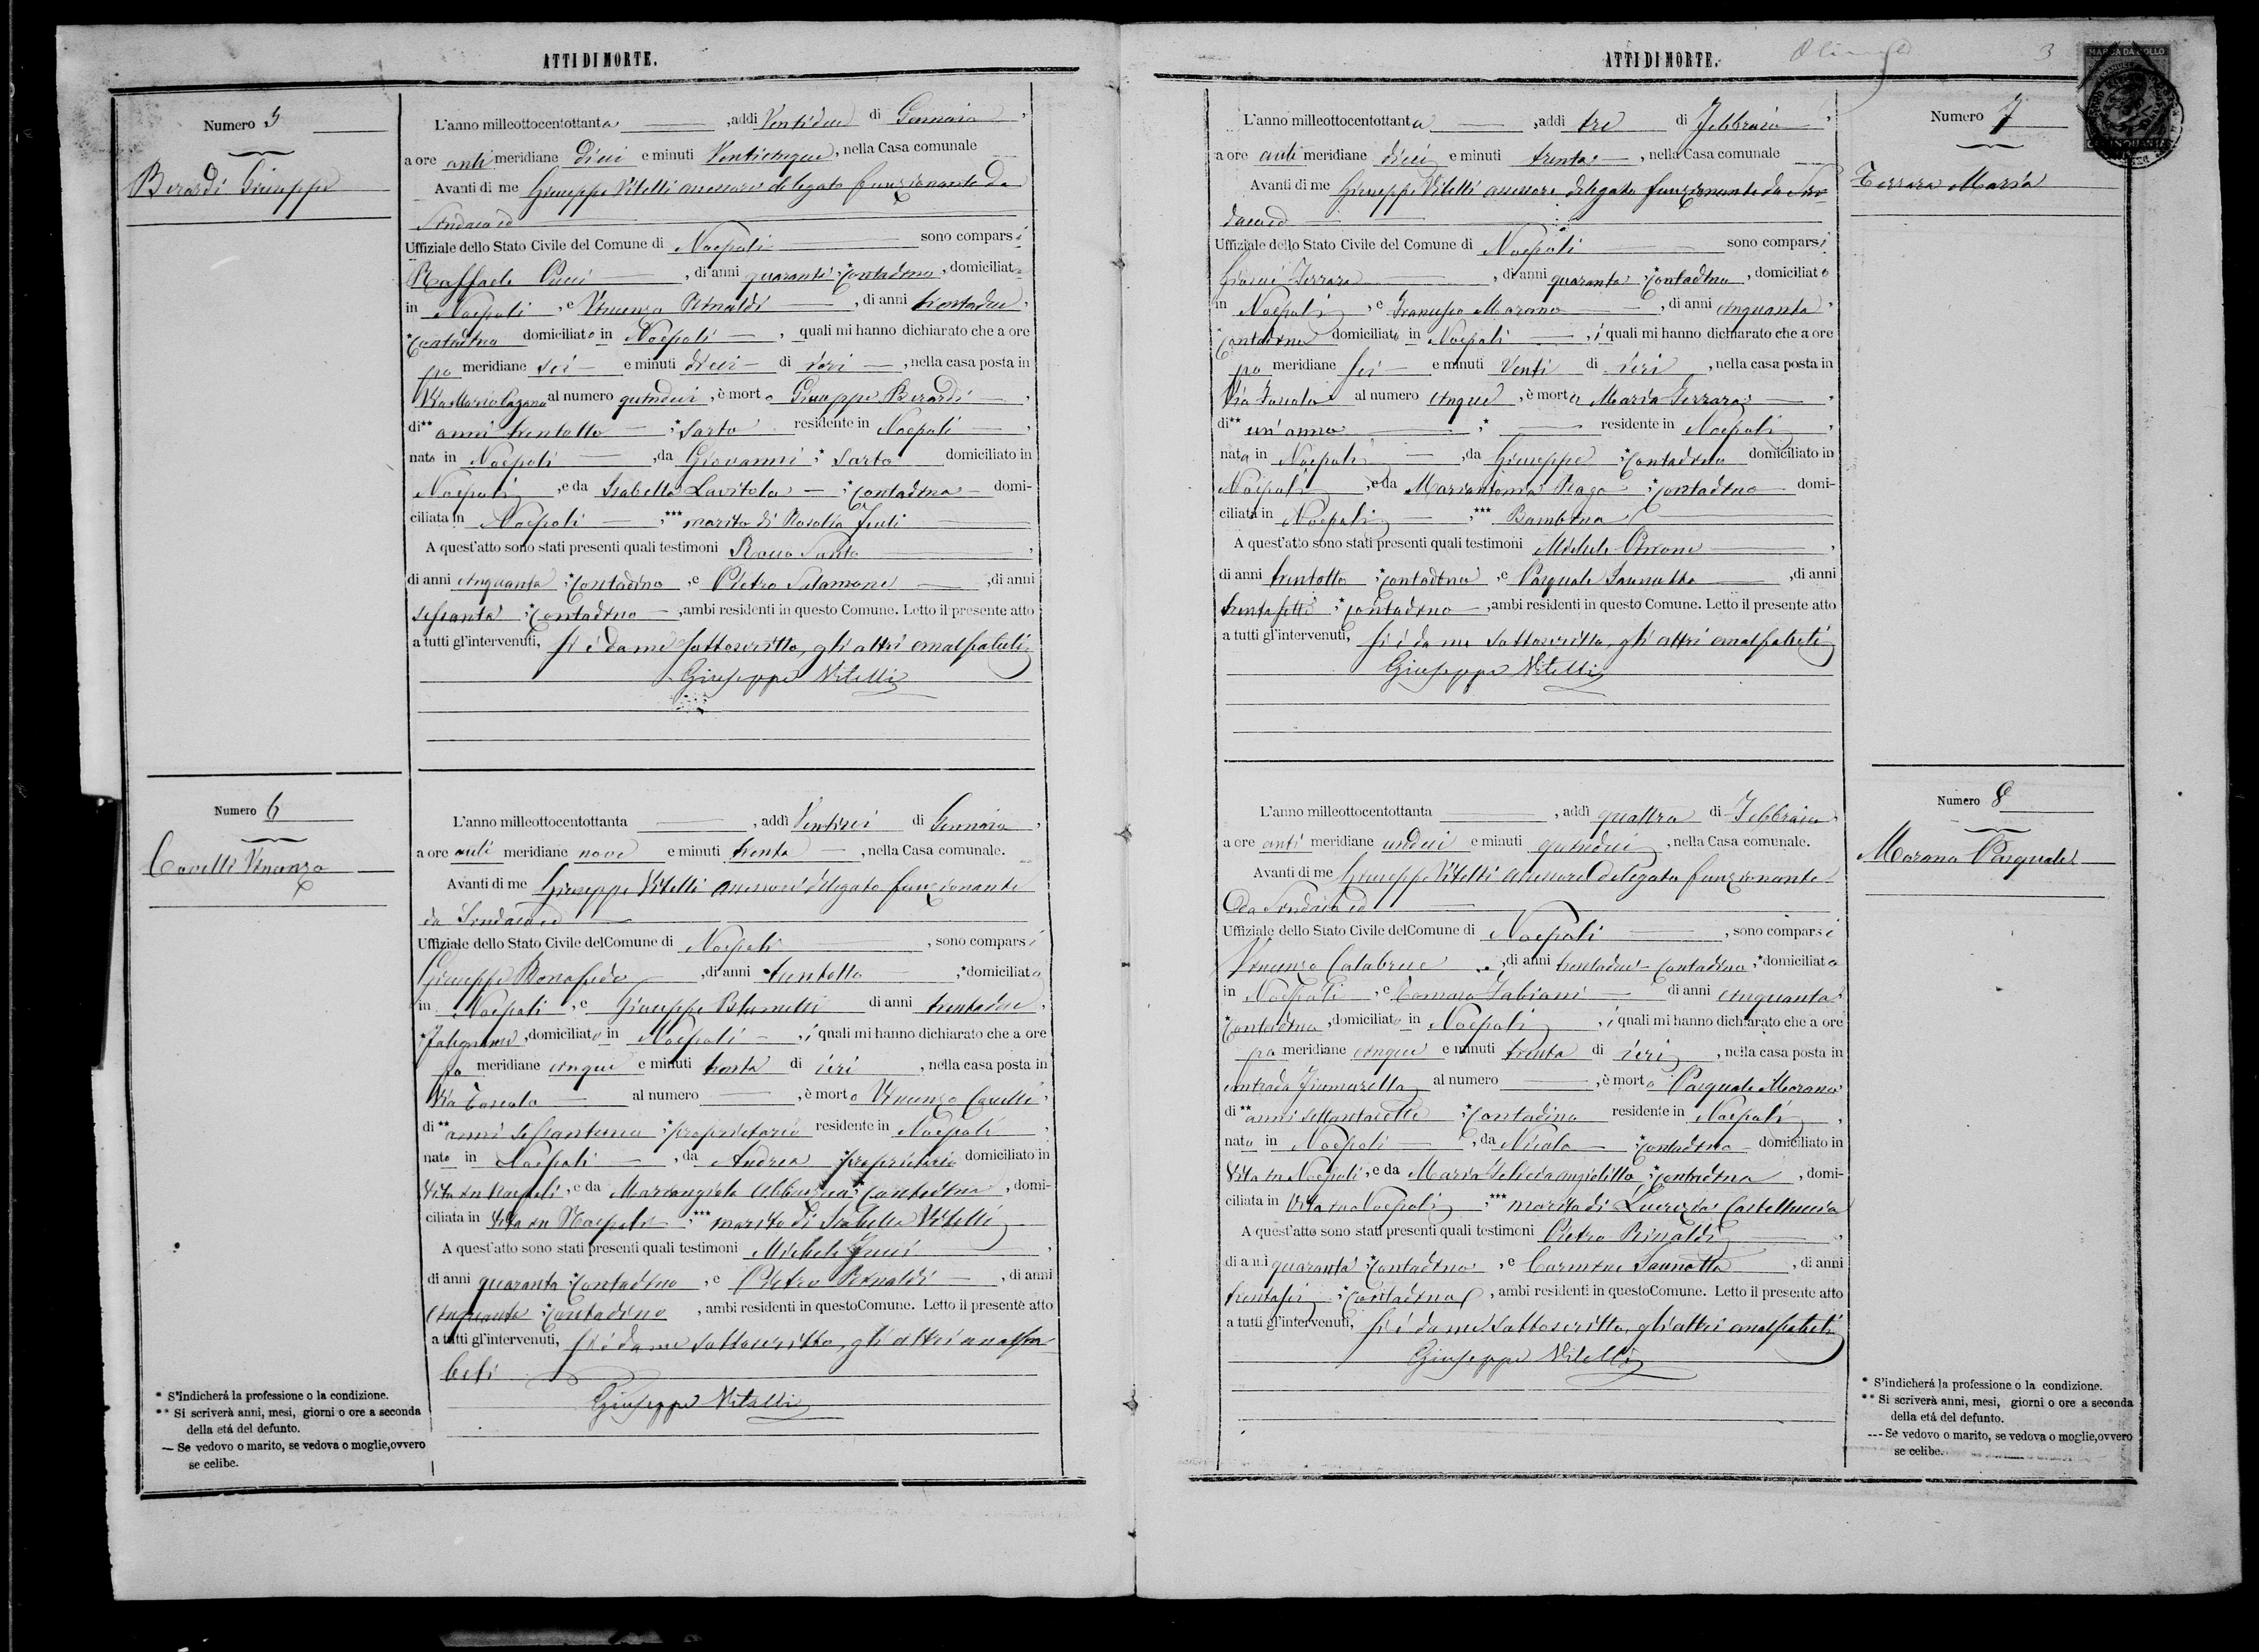 ATTI DI MORTE.
Numero 5
Berardi Giuseppe
L'anno milleottocentottanta, addì Ventidue di Gennaio,
a ore anti meridiane dieci e minuti Venticinque, nella Casa comunale
Avanti di me Giuseppe Vitelli assessore delegato funzionante da
Sindaco ed
Uffiziale dello Stato Civile del Comune di Noepoli sono comparsi
Raffaele, di anni quaranta,* Contadino, domiciliato
in Noepoli, e Vincenzo Rinaldi, di anni trentadue,
*Contadino domiciliato in Noepoli, quali mi hanno dichiarato che a ore
po meridiane sei e minuti dieci di ieri, nella casa posta in
Via Mario Pagano al numero quindici, è morto Giuseppe Berardi,
di** anni trentotto,* Sarto residente in Noepoli,
nato in Noepoli, da Giovanni,* Sarto domiciliato in
Noepoli, e da Isabella Lavitola,* Contadina domi-
ciliata in Noepoli,*** marito di Rosalia
A quest'atto sono stati presenti quali testimoni Rocco Santo,
di anni cinquanta,* Contadino, e Pietro Salamone, di anni
sessanta,* Contadino, ambi residenti in questo Comune. Letto il presente atto
a tutti gl'intervenuti, si è da me sottoscritto, gli altri analfabeti
Giuseppe Vitelli
Numero 6
Cavelli Vincenzo
L'anno milleottocentottanta, addì Ventisei di Gennaio,
a ore anti meridiane nove e minuti trenta, nella Casa comunale.
Avanti di me Giuseppe Vitelli assessore delegato funzionante
da Sindaco ed
Uffiziale dello Stato Civile delComune di Noepoli, sono comparsi
Giuseppe Bonafede, di anni trentotto,*domiciliato
in Noepoli, e Giuseppe di anni trentadue,
*Falegname, domiciliato in Noepoli, i quali mi hanno dichiarato che a ore
po meridiane cinque e minuti trenta di ieri, nella casa posta in
Via Toscolo al numero, è morto Vincenzo Cavelli,
di** anni sessantuno,* proprietario residente in Noepoli,
nato in Noepoli, da Andrea,* proprietario domiciliato in
Vita in Noepoli, e da Mariangiola,* Contadina, domi-
ciliata in Vita in Noepoli,*** marito di Isabella Vitelli
A quest'atto sono stati presenti quali testimoni Michele,
di anni quaranta,* Contadino, e Pietro Rinaldi, di anni
Cinquanta,* Contadino, ambi residenti in questoComune. Letto il presente atto
a tutti gl'intervenuti, si è da me sottoscritto, gli altri analfa
beti
Giuseppe Vitelli
* S'indicherà la professione o la condizione.
** Si scriverà anni, mesi, giorni o ore a seconda
della età del defunto.
— Se vedovo o marito, se vedova o moglie,ovvero
se celibe.
ATTI DI MORTE.
3
MARCA DA BOLLO
Numero 7
Ferrara Maria
L'anno milleottocentottanta, addì tre di Febbraio,
a ore anti meridiane dieci e minuti trenta, nella Casa comunale
Avanti di me Giuseppe Vitelli assessore delegato funzionante da Sin
daco ed
Uffiziale dello Stato Civile del Comune di Noepoli sono comparsi
Ferrara, di anni quaranta,* Contadino, domiciliato
in Noepoli, e Francesco Marano, di anni cinquanta,
*Contadino domiciliato in Noepoli, i quali mi hanno dichiarato che a ore
po meridiane sei e minuti Venti di ieri, nella casa posta in
Via Toscolo al numero cinque, è morta Maria Ferrara,
di** un'anno,* residente in Noepoli,
nata in Noepoli, da Giuseppe,* Contadino domiciliato in
Noepoli, e da Mariantonia Rago,* Contadina domi-
ciliata in Noepoli,*** Bambina
A quest'atto sono stati presenti quali testimoni Michele,
di anni trentotto,* Contadino, e Pasquale, di anni
trentasette,* Contadino, ambi residenti in questo Comune. Letto il presente atto
a tutti gl'intervenuti, si è da me sottoscritto, gli altri analfabeti
Giuseppe Vitelli
Numero 8
Marano Pasquale
L'anno milleottocentottanta, addì quattro di Febbraio,
a ore anti meridiane undici e minuti quindici, nella Casa comunale.
Avanti di me Giuseppe Vitelli assessore delegato funzionante
da Sindaco ed
Uffiziale dello Stato Civile delComune di Noepoli, sono comparsi
Vincenzo Calabrese, di anni trentadue Contadino,*domiciliato
in Noepoli, e Tomaso Fabiani di anni cinquanta,
*Contadino, domiciliato in Noepoli, i quali mi hanno dichiarato che a ore
po meridiane cinque e minuti trenta di ieri, nella casa posta in
contrada Fiumarella al numero, è morto Pasquale Marano
di** anni settantasette,* Contadino residente in Noepoli,
nato in Noepoli, da Nicola,* Contadino domiciliato in
Vita in Noepoli, e da Maria,* Contadina, domi-
ciliata in Vita in Noepoli,*** marito di Lucrezia Castelluccio
A quest'atto sono stati presenti quali testimoni Pietro Rinaldi,
di anni quaranta,* Contadino, e Carmine, di anni
trentasei,* Contadino, ambi residenti in questoComune. Letto il presente atto
a tutti gl'intervenuti, si è da me sottoscritto, gli altri analfabeti
Giuseppe Vitelli
* S'indicherà la professione o la condizione.
** Si scriverà anni, mesi, giorni o ore a seconda
della età del defunto.
--- Se vedovo o marito, se vedova o moglie,ovvero
se celibe.